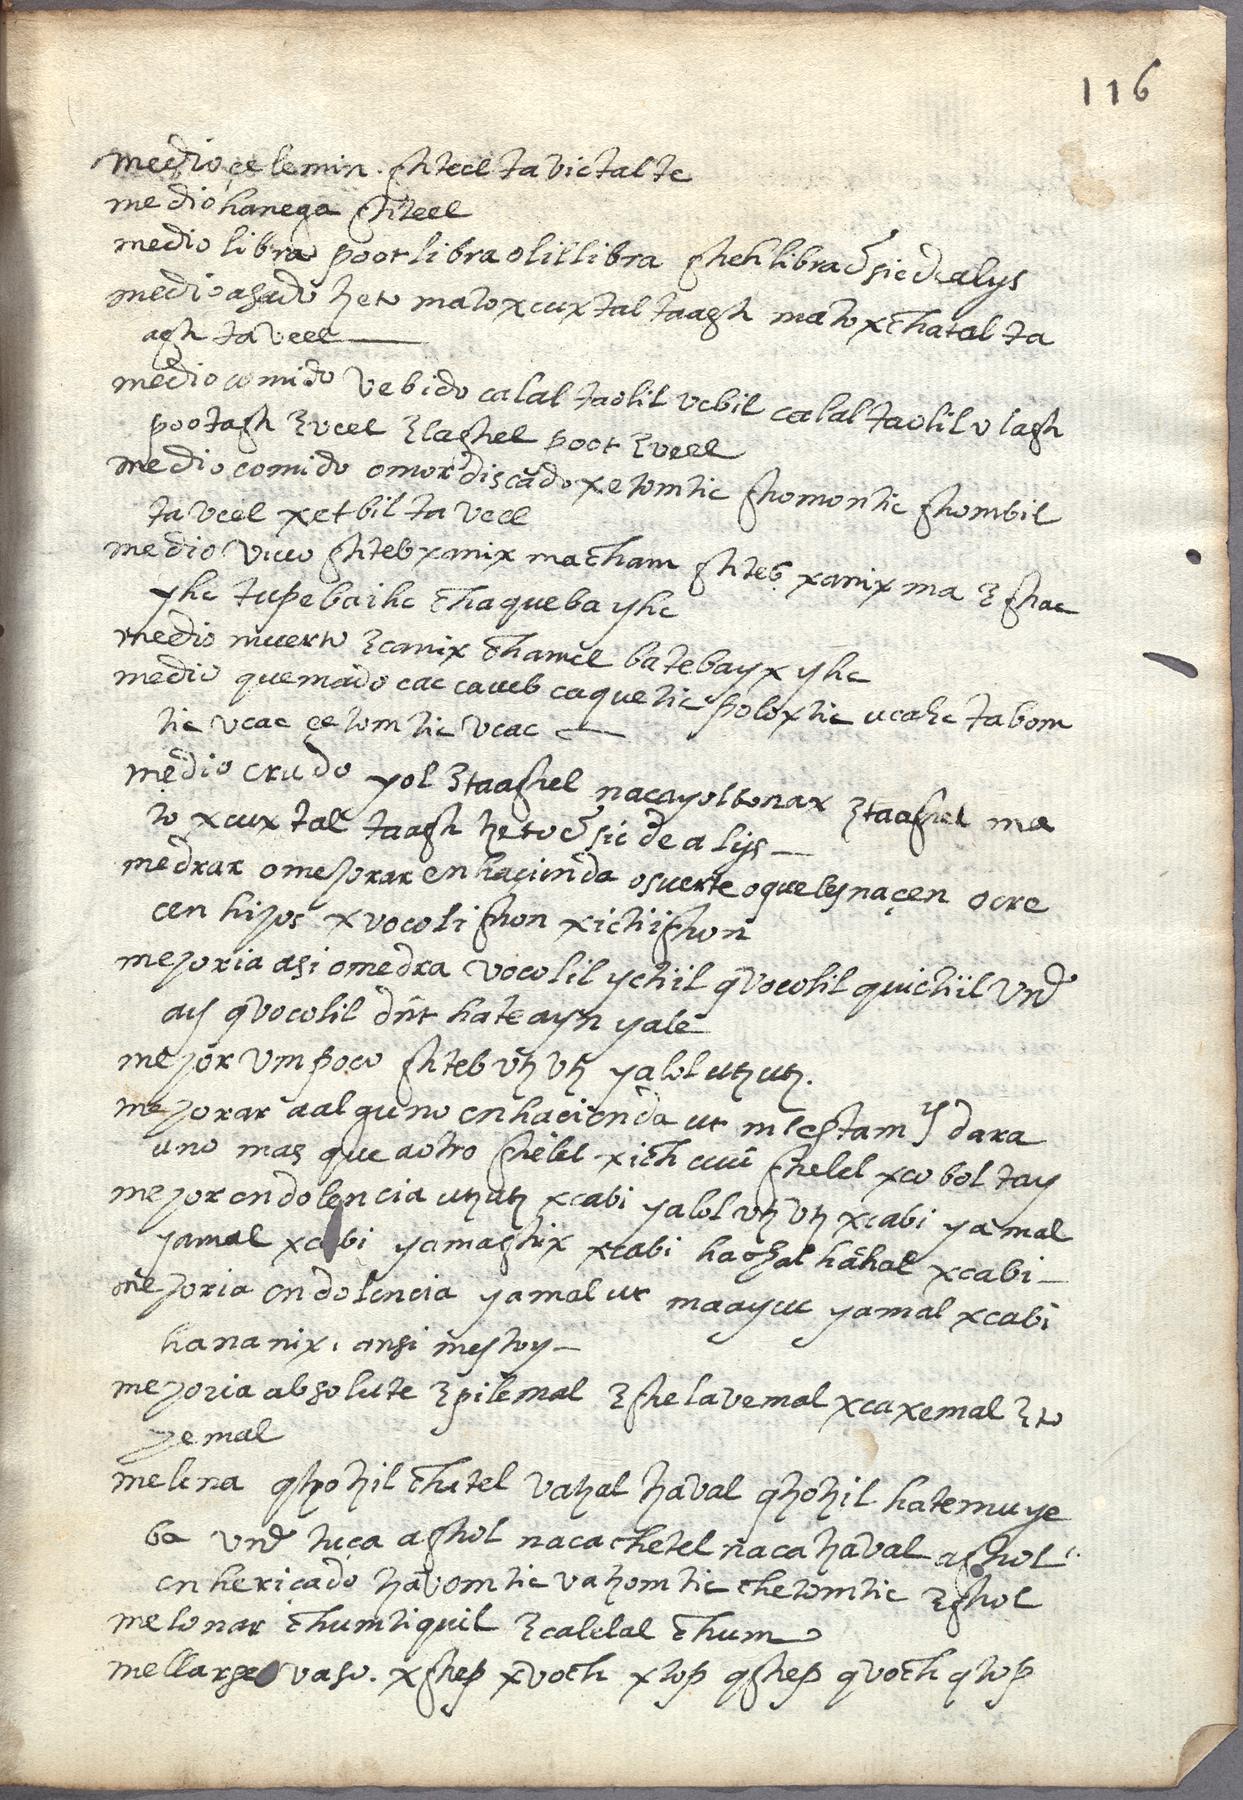 116
medio çelemin. shteel ta victalte
medio hanega shteel
medio libra poot libra olil libra sheh libra &sic de alys
medio asado tzeto mato xcuxtal taagh mato xthatal ta
agh ta veel
medio comido v bebido calal taolil vcbil calal taolil vlagh
pootagh Ɛveel Ɛlaghel poot Ɛveel
medio comido o mordiscado xetomtic ghomontic ghombil
ta veel xetbil ta veel
medio vivo shteb xanix ma cham shteb xanix ma Ɛ
yhc tupebaihc chaquebayhc
medio muerto Ɛcanix chamel batebayx yhc
medio quemado cac caveb caquetic poloxtic ucahc tabom
tic vcac çetomtic vcac
medio crudo yol Ɛtaaghel nacayoltonax Ɛtaaghel ma
to xcuxtal taagh tzeto &sic de alys
medrar o mejorar en haçienda o suerte o que les naçen o cre
cen hijos xvocolighon xichiighon
mejoria asi o medra vocolil ychiil qvocolil quichiil vnde
ay qvocolil dnt hateayn yale
mejor vm poco shteb vtz vtz yalol utzutz.
mejorar a alguno en hacienda ut in testamto dara
uno mas que a otro shelel xich shelel xcobol tay
mejor en dolencia utzutz xcabi yalol vtz vtz xcabi yamal
yamal xcabi yamaghix xcabi haghal hahal xcabi
mejoria en dolencia yamal ut maayuc yamal xcabi
hananix, ansi mestoy
mejoria absolute Ɛpilemal Ɛshelavemal xcaxemal Ɛto
yemal
melena qtzotzil chitel vatzal tzaval qtzotzil hatemuye
ba vnde tuca aghol nacachetel nacatzaval aghol
enhericado tzavomtic vatzomtic chetomtic Ɛghol
melonar chumtiquil Ɛcalelal chum
mellarse vaso. xshep xvoch xtop qshep qvoch qtop